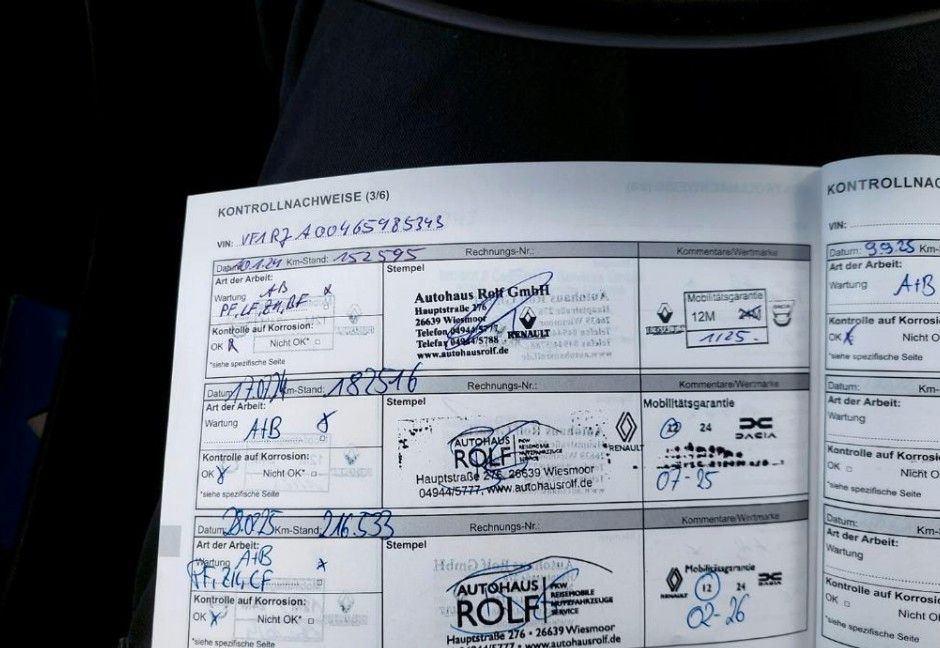 KONTROLLNACHWEISE (3/6)
VIN: VF1RJA00465985343
Km-Stand: 152595
Rechnungs-Nr.:
Kommentare/Wertmarke
Art der Arbeit:
Wartung A+B x
PF, LF, ZH, BF
Kontrolle auf Korrosion:
OK x Nicht OK*
*siehe spezifische Seite
Stempel
Autohaus Rolf GmbH
Hauptstraße 276
26639 Wiesmoor
Telefon 04944/5777
Telefax 04944/5788
www.autohausrolf.de
RENAULT
Mobilitätsgarantie
12M
1125
DACIA
Km-Stand: 182516
Rechnungs-Nr.:
Kommentare/Wertmarke
Art der Arbeit:
Wartung A+B x
Kontrolle auf Korrosion:
OK x Nicht OK*
*siehe spezifische Seite
Stempel
AUTOHAUS
ROLF
PKW
REISEMOBILE
NUTZFAHRZEUGE
SERVICE
Hauptstraße 276, 26639 Wiesmoor
04944/5777, www.autohausrolf.de
RENAULT
Mobilitätsgarantie
12 24
DACIA
07-25
Datum: Km-Stand: 216.533
Rechnungs-Nr.:
Kommentare/Wertmarke
Art der Arbeit:
Wartung A+B x
Kontrolle auf Korrosion:
OK x Nicht OK*
*siehe spezifische Seite
Stempel
AUTOHAUS
ROLF
PKW
REISEMOBILE
NUTZFAHRZEUGE
SERVICE
Hauptstraße 276 • 26639 Wiesmoor
www.autohausrolf.de
RENAULT
Mobilitätsgarantie
12 24
DACIA
02-26
KONTROLLNAC
VIN:
Datum: 9.9.25 Km-S
Art der Arbeit:
Wartung A+B
Kontrolle auf Korrosion
OK x Nicht O
*siehe spezifische Seite
Datum: Km-
Art der Arbeit:
Wartung
Kontrolle auf Korrosi
OK Nicht O
*siehe spezifische Seite
Datum: Km
Art der Arbeit:
Wartung
Kontrolle auf Korros
OK Nicht
*siehe spezifische Seite